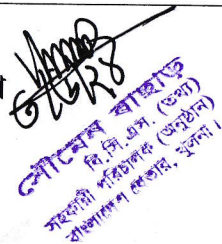 সৌমেন বাছাড়
বি.সি.এস (তথ্য)
সহকারী পরিচালক (অনুষ্ঠান)
বাংলাদেশ বেতার, খুলনা।